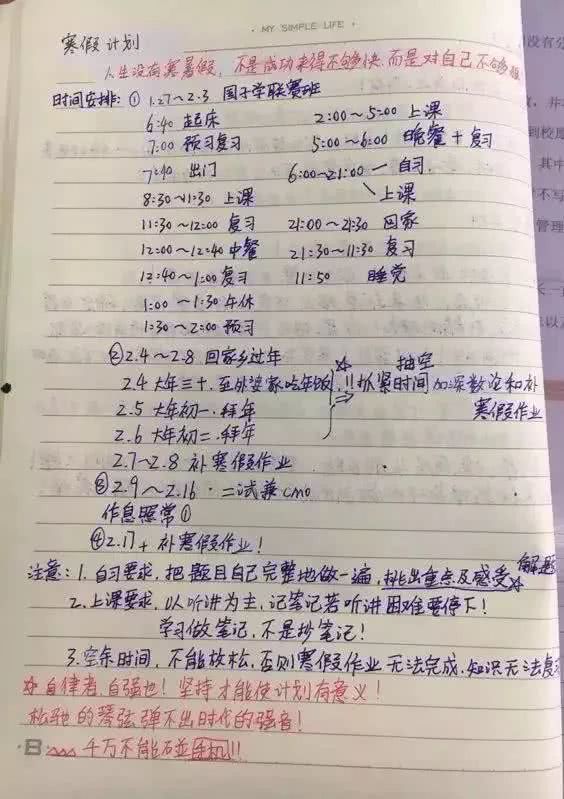 · MY SIMPLE LIFE ·
寒假计划
人生没有寒暑假，不是成功来得不够快，而是对自己不够狠
时间安排：① 1.27～2.3 国子学联赛班
6:40 起床 2:00～5:00 上课
7:00 预习复习 5:00～6:00 晚餐＋复习
7:40 出门 6:00～21:00 一 自习
8:30～11:30 上课 ﹨上课
11:30～12:00 复习 21:00～21:30 回家
12:00～12:40 中餐 21:30～11:30 复习
12:40～1:00 复习 11:50 睡觉
1:00～1:30 午休
1:30～2:00 预习
② 2.4～2.8 回家乡过年
2.4 大年三十.至外婆家吃年饭 ☆ 抽空
!!抓紧时间加深数论和补寒假作业
2.5 大年初一.拜年
2.6 大年初二.拜年
2.7～2.8 补寒假作业
③ 2.9～2.16 · 二试兼cmo
作息照常①
④ 2.17＋ 补寒假作业！
注意：1. 自习要求，把题目自己完整地做一遍，挑出重点及感受☆解题
2. 上课要求，以听讲为主，记笔记若听讲困难要停下！
学习做笔记，不是抄笔记！
3. 空余时间，不能放松，否则寒假作业无法完成，知识无法复
☆ 自律者，自强也！坚持才能使计划有意义！
松弛的琴弦弹不出时代的强音！
千万不能碰手机!!